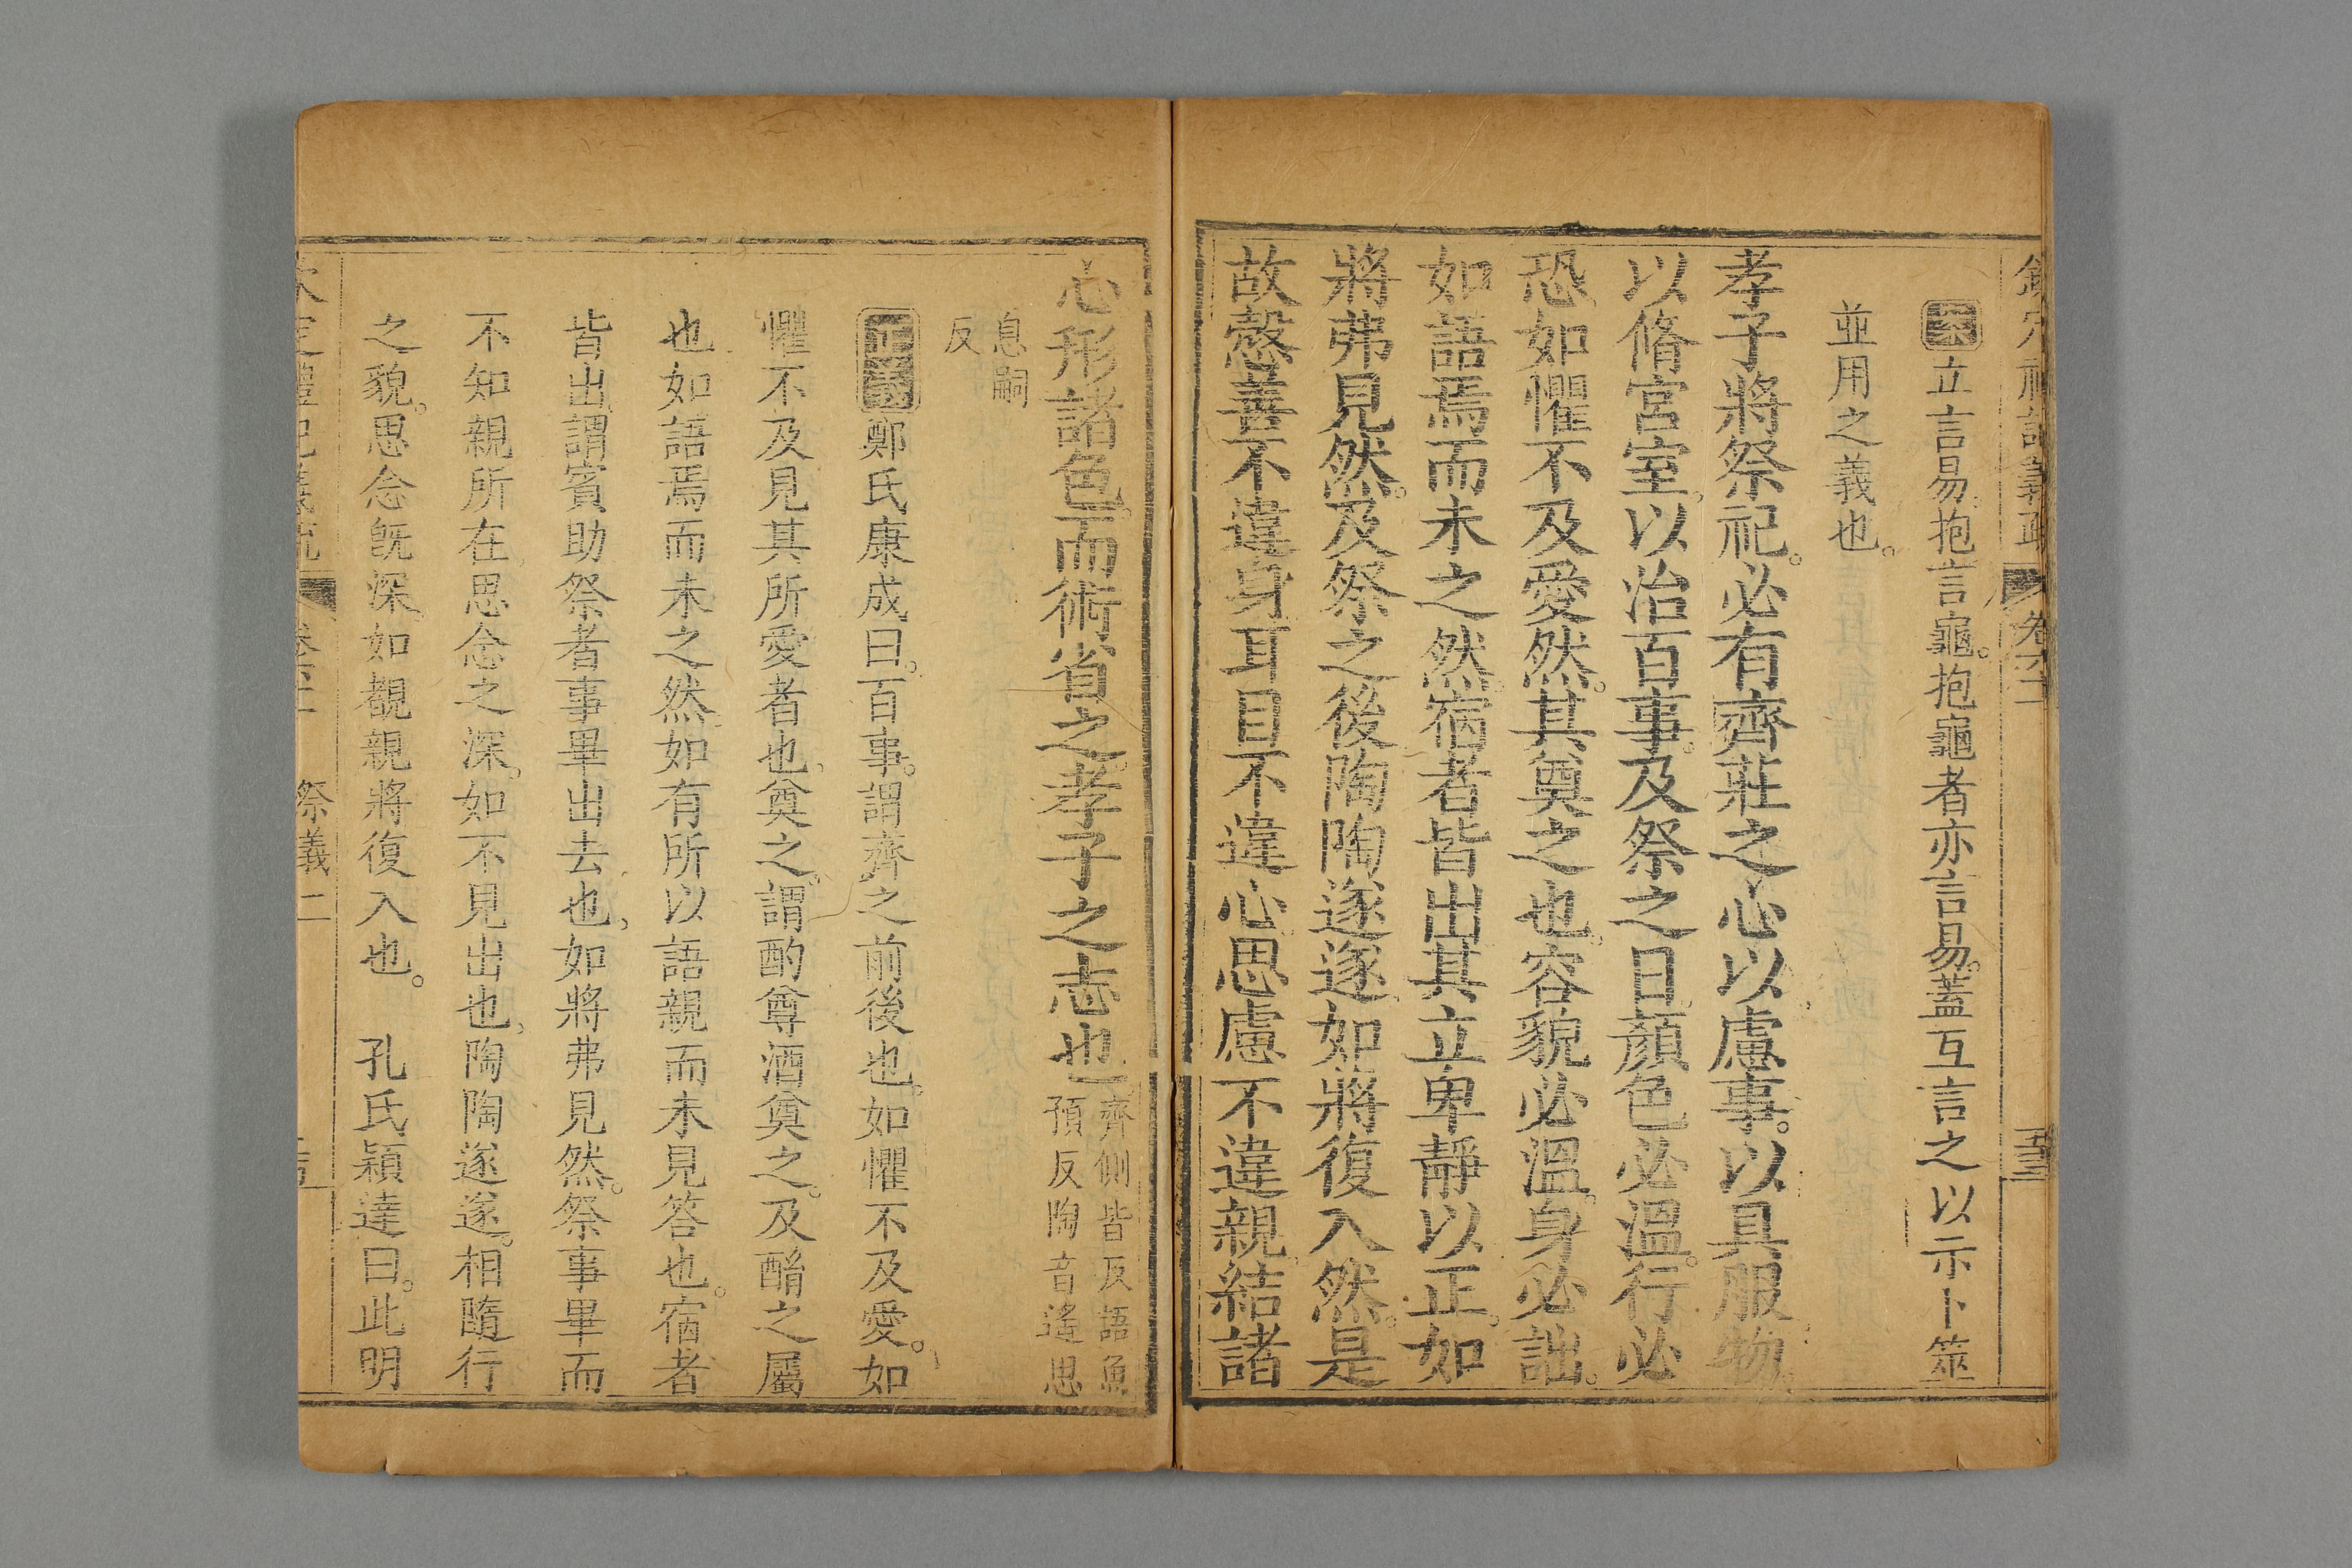 立言易。抱言龜。抱龜者亦言易。蓋互言之以示卜筮
並用之義也。
孝子將祭祀。必有齊莊之心以慮事。以具服物。
以脩宮室。以治百事。及祭之日。顏色必溫。行必
恐。如懼不及愛然。其奠之也。容貌必溫。身必詘。
如語焉而未之然。宿者皆出。其立卑靜以正。如
將弗見然。及祭之後。陶陶遂遂。如將復入然。是
故慤善不違身。耳目不違心。思慮不違親。結諸
心。形諸色。而術省之。孝子之志也
齊側皆反語魚
預反陶音遙思
息嗣
反
正義鄭氏康成曰。百事。謂齊之前後也。如懼不及愛。如
懼不及見其所愛者也。奠之。謂酌尊酒奠之。及酳之屬
也。如語焉而未之然。如有所以語親而未見答也。宿者
皆出。謂賓助祭者事畢出去也。如將弗見然。祭事畢而
不知親所在。思念之深。如不見出也。陶陶遂遂。相隨行
之貌。思念旣深。如覩親將復入也。 孔氏穎達曰。此明
祭義二